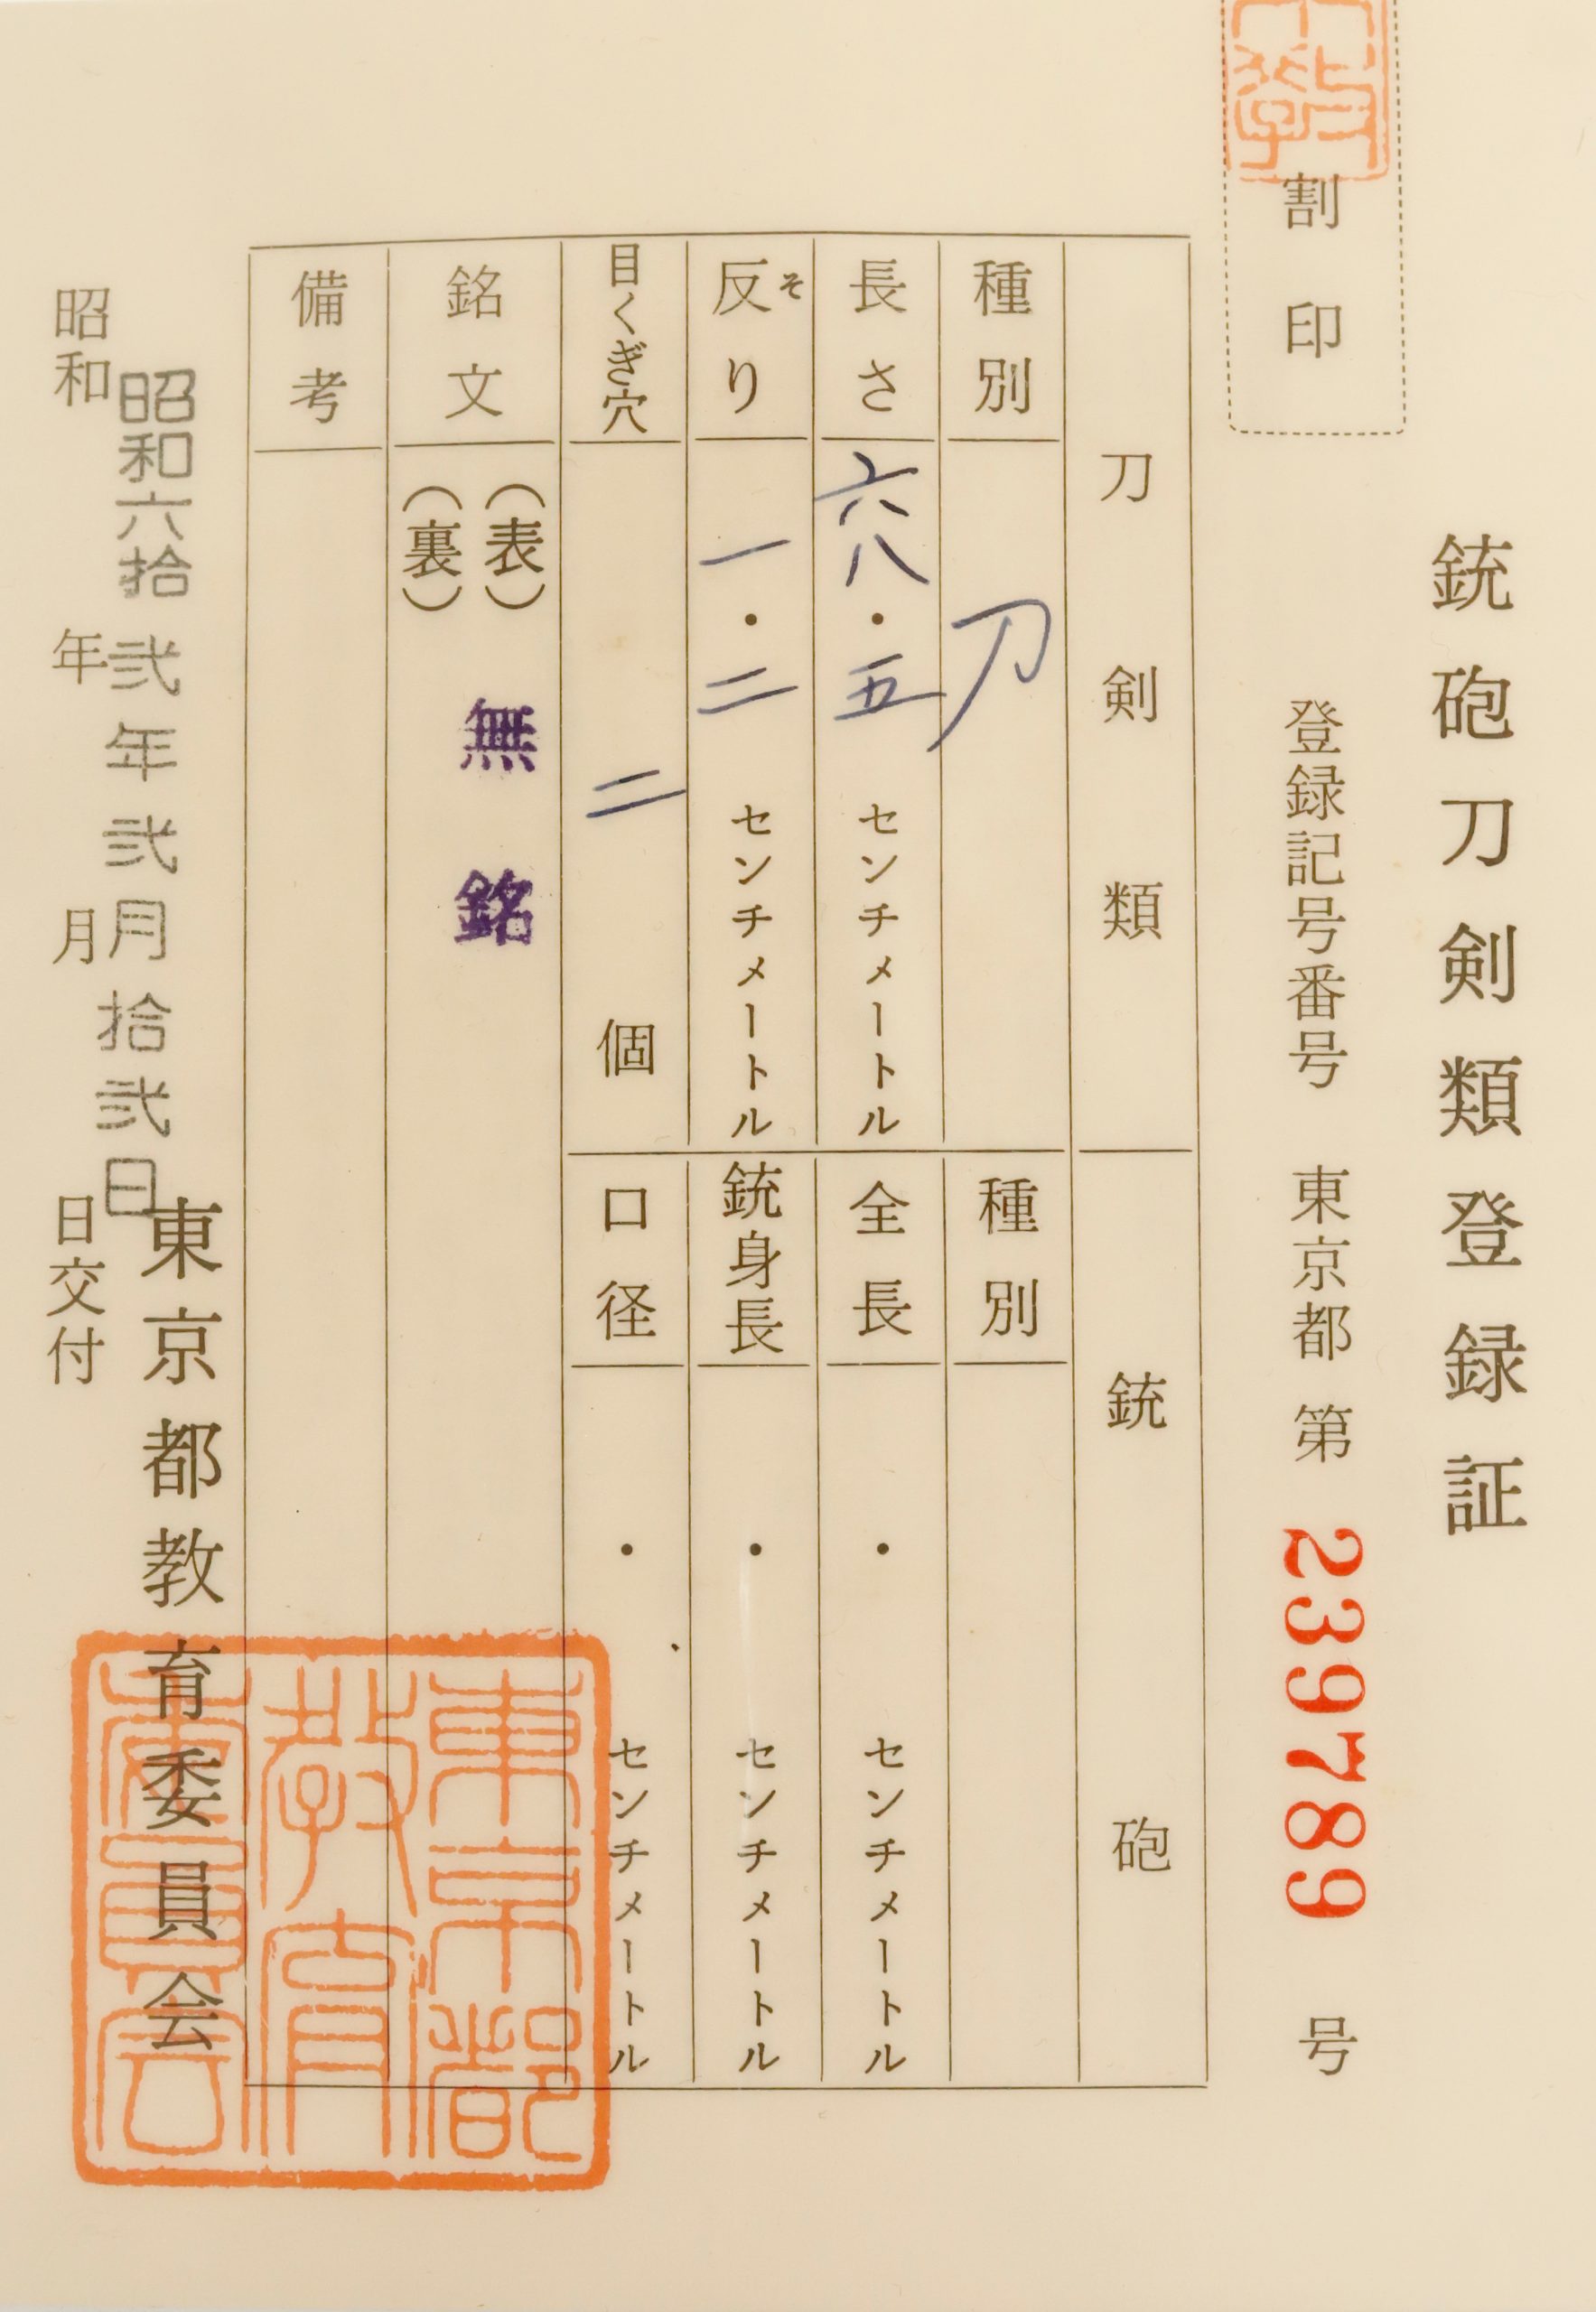 銃砲刀剣類登録証
割印
登録記号番号 東京都 第 239789 号
刀剣類
種別 刀
長さ 六八・五 センチメートル
反り 一・二 センチメートル
そ
目くぎ穴 二 個
銘文 (表) 無銘
(裏)
備考
銃砲
種別
全長 ・ センチメートル
銃身長 ・ センチメートル
口径 ・ センチメートル
東京都教育委員会
昭和六拾弐年弐月拾弐日
昭和 年 月 日交付
東京都
教育
委員会